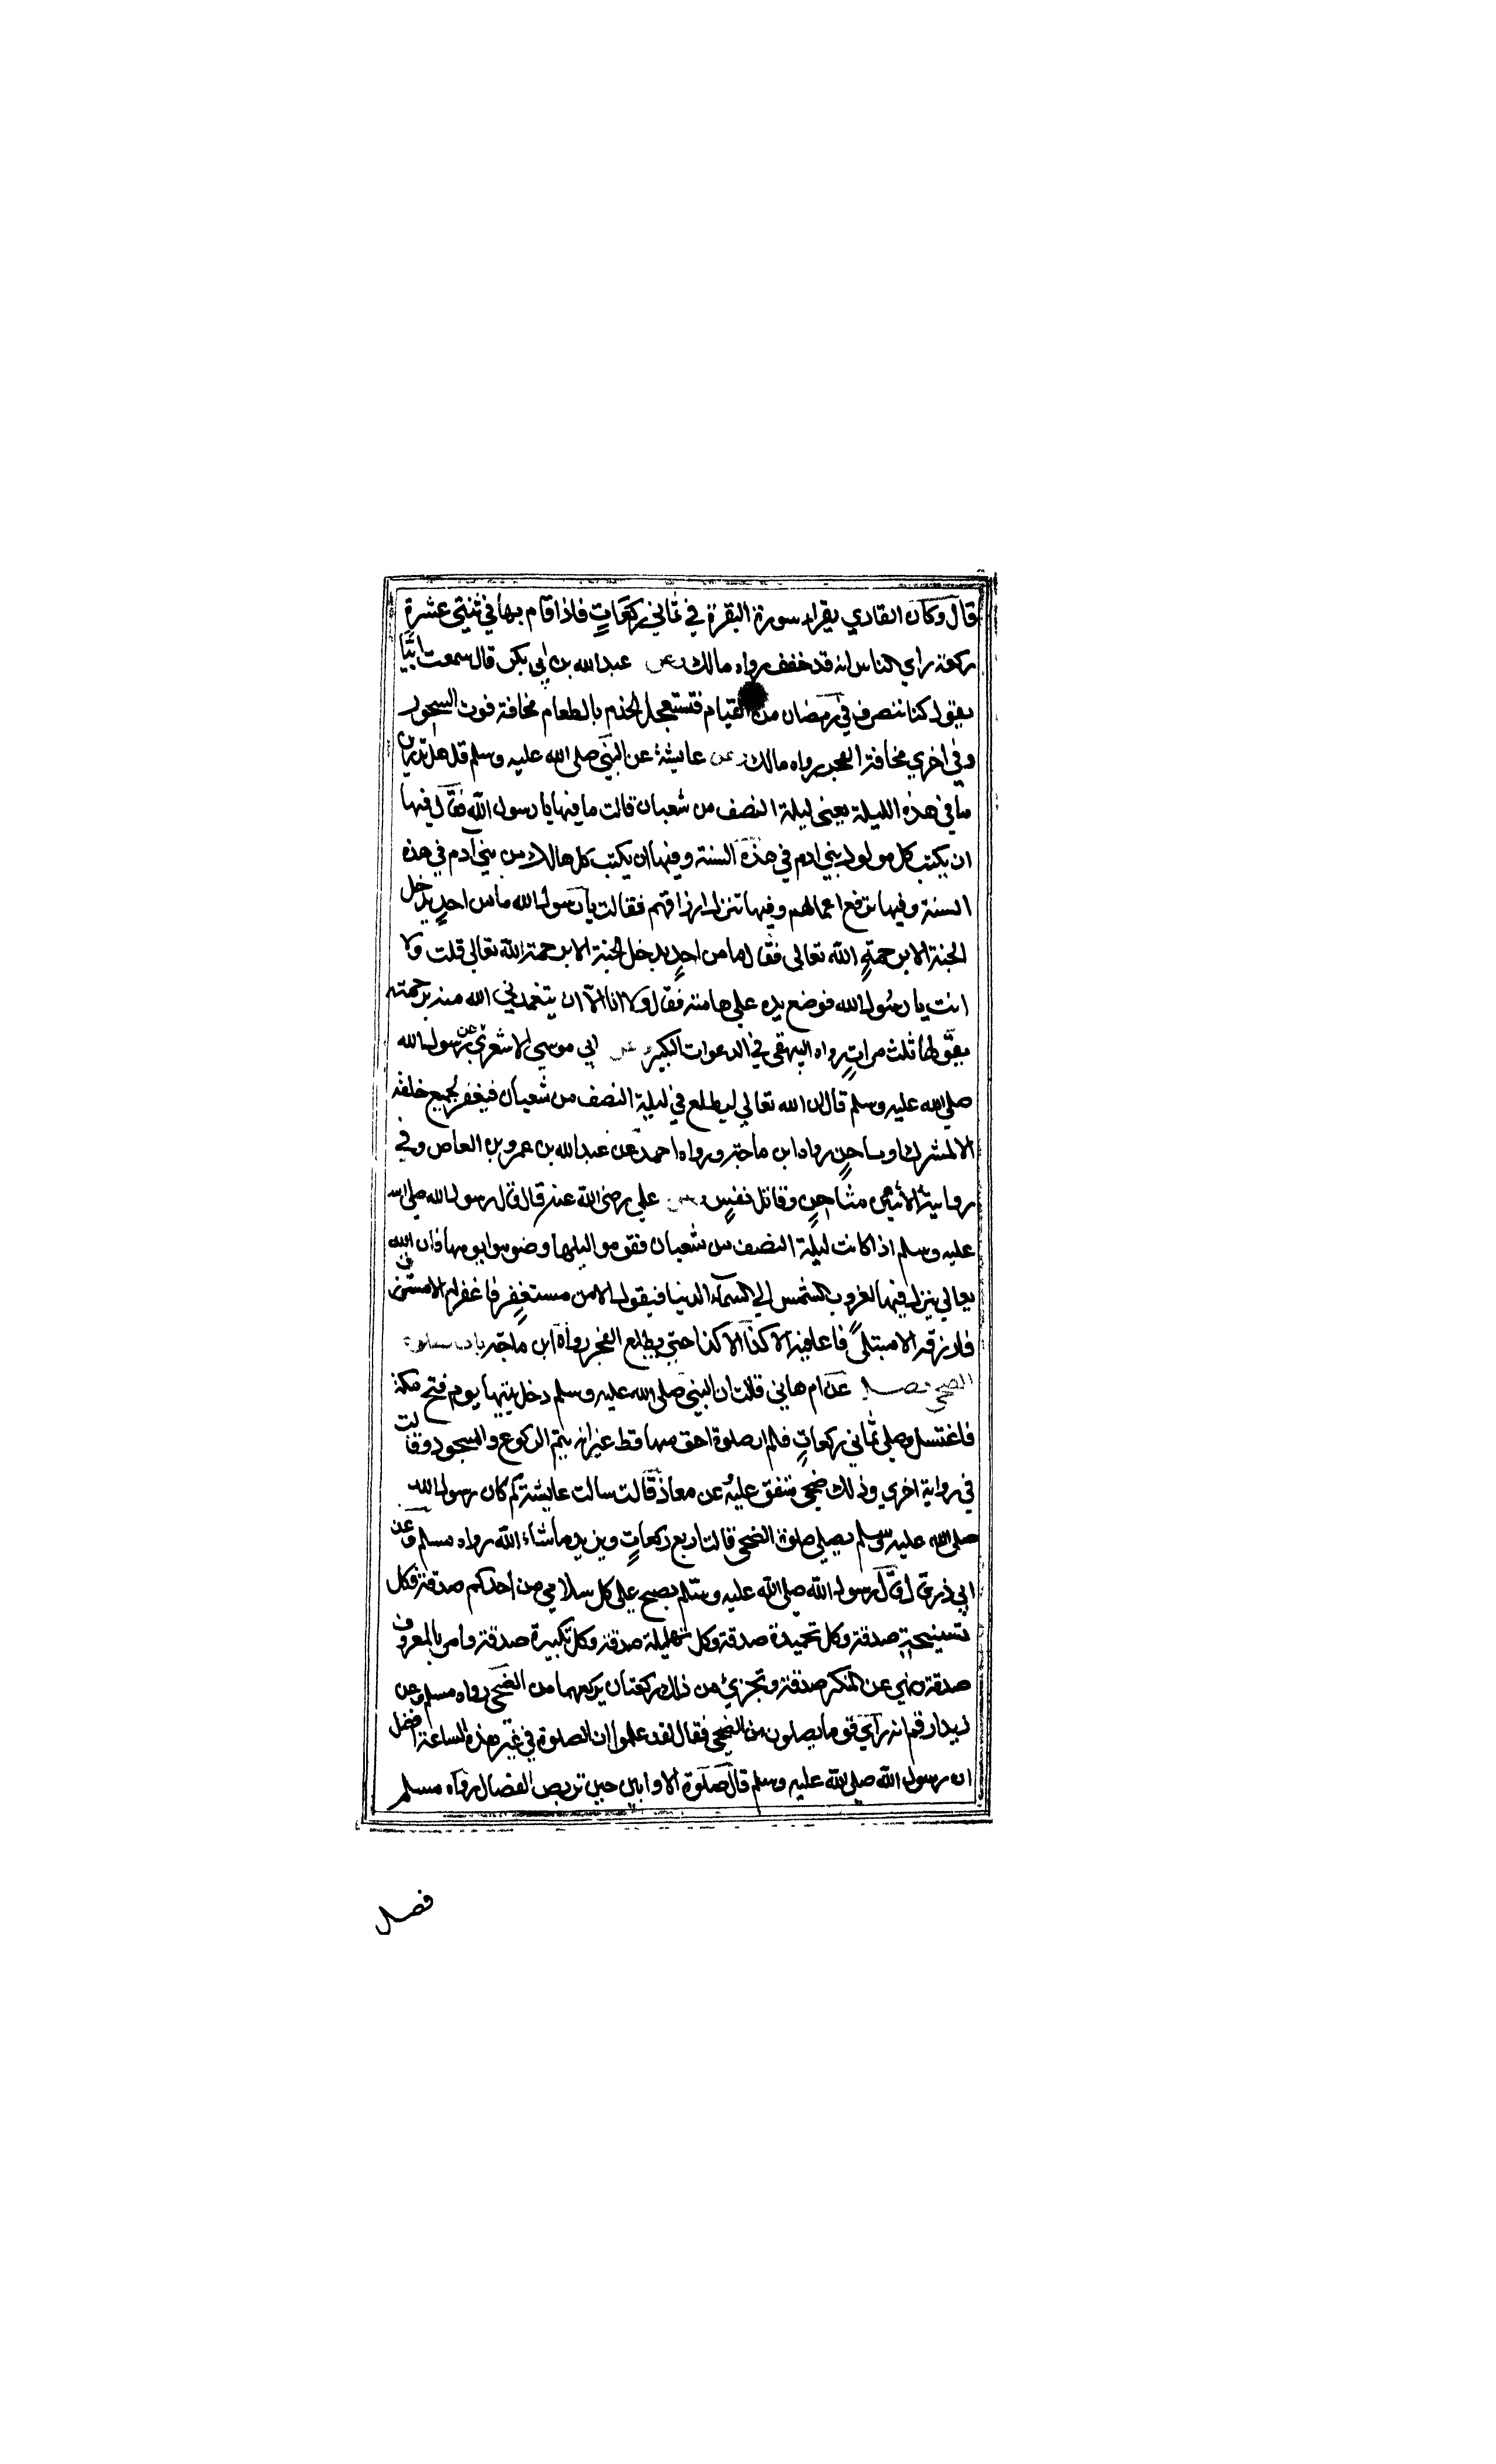 قال وكان القاري يقراء سورة البقرة في ثماني ركعاتٍ فاذا قام بها في ثنتي عشرة
ركعة راي الناس انه قد خفف رواه مالك وعن عبد الله بن ابي بكر قال سمعت ابيّا
يقول كنا ننصرف في رمضان من القيام فنستعجل الخدم بالطعام مخافة فوت السحور
وفي اخري مخافة الفجر رواه مالك وعن عايشة عن النبي صلى الله عليه وسلم قال هل تدرين
ما في هذه الليلة يعني ليلة النصف من شعبان قالت ما فيها يا رسول الله فقال فيها
ان يكتب كل مولود بني ادم في هذه السنة وفيها ان يكتب كل هالك من بني آدم في هذه
السنة وفيها ترفع اعمالهم وفيها تنزل ارزاقهم فقالت يا رسول الله ما من احدٍ يدخل
الجنة الا برحمةِ الله تعالى فقال ما من احدٍ يدخل الجنة الا برحمة الله تعالى قلت ولا
انت يا رسول الله فوضع يده علي هامته فقال ولا انا الّا ان يتغمدني الله منه برحمته
يقولها ثلث مراتٍ رواه البيهقي في الدعوات الكبير وعن ابي موسي الاشعري عن رسول الله
صلي الله عليه وسلم قال ان الله تعالي ليطلع في ليلة النصف من شعبان فيغفر لجميع خلقه
الا لمشرك او مشاحنٍ رواه ابن ماجة ورواه احمد عن عبد الله بن عمرو بن العاص وفي
رواية الا اثنين مشاحنٍ وقاتل نفسٍ وعن علي رضي الله عنه قال قال رسول الله صلي الله
عليه وسلم اذا كانت ليلة النصف من شعبان فقوموا ليلها وصوموا يومها فان الله
تعالي ينزل فيها لغروب الشمس الي السماء الدنيا فيقول الا من مستغفرٍ فاغفر له الا مسترزق
فارزقه الا مبتليً فاعافيه الا كذا الا كذا حتي يطلع الفجر رواه ابن ماجة باب صلوة
الضحي فصل عن ام هاني قالت ان النبي صلى الله عليه وسلم دخل بيتها يوم فتح مكة
فاغتسل وصلي ثماني ركعاتٍ فلم ار صلوة اخف منها قط غير انه يتم الركوع والسجود وقالت
في رواية اخري وذلك ضحي متفق عليه وعن معاذة قالت سالت عايشة كم كان رسول الله
صلى الله عليه وسلم يصلي صلوة الضحي قالت اربع ركعاتٍ ويزيد ما شاء الله رواه مسلم وعن
ابي ذر قال قال رسول الله صلي الله عليه وسلم يصبح علي كل سلامي من احدكم صدقة فكل
تسبيحةٍ صدقة وكل تحميدة صدقة وكل تهليلة صدقة وكل تكبيرة صدقة وامر بالمعروف
صدقة ونهي عن المنكر صدقة وتجزئ من ذلك ركعتان يركعهما من الضحي رواه مسلم وعن
زيد ارقم انه راي قوما يصلون من الضحي فقال لقد علموا ان الصلوة في غير هذه الساعة افضل
ان رسول الله صلي الله عليه وسلم قال صلوة الاوابين حين ترمض الفصال رواه مسلم
فصل